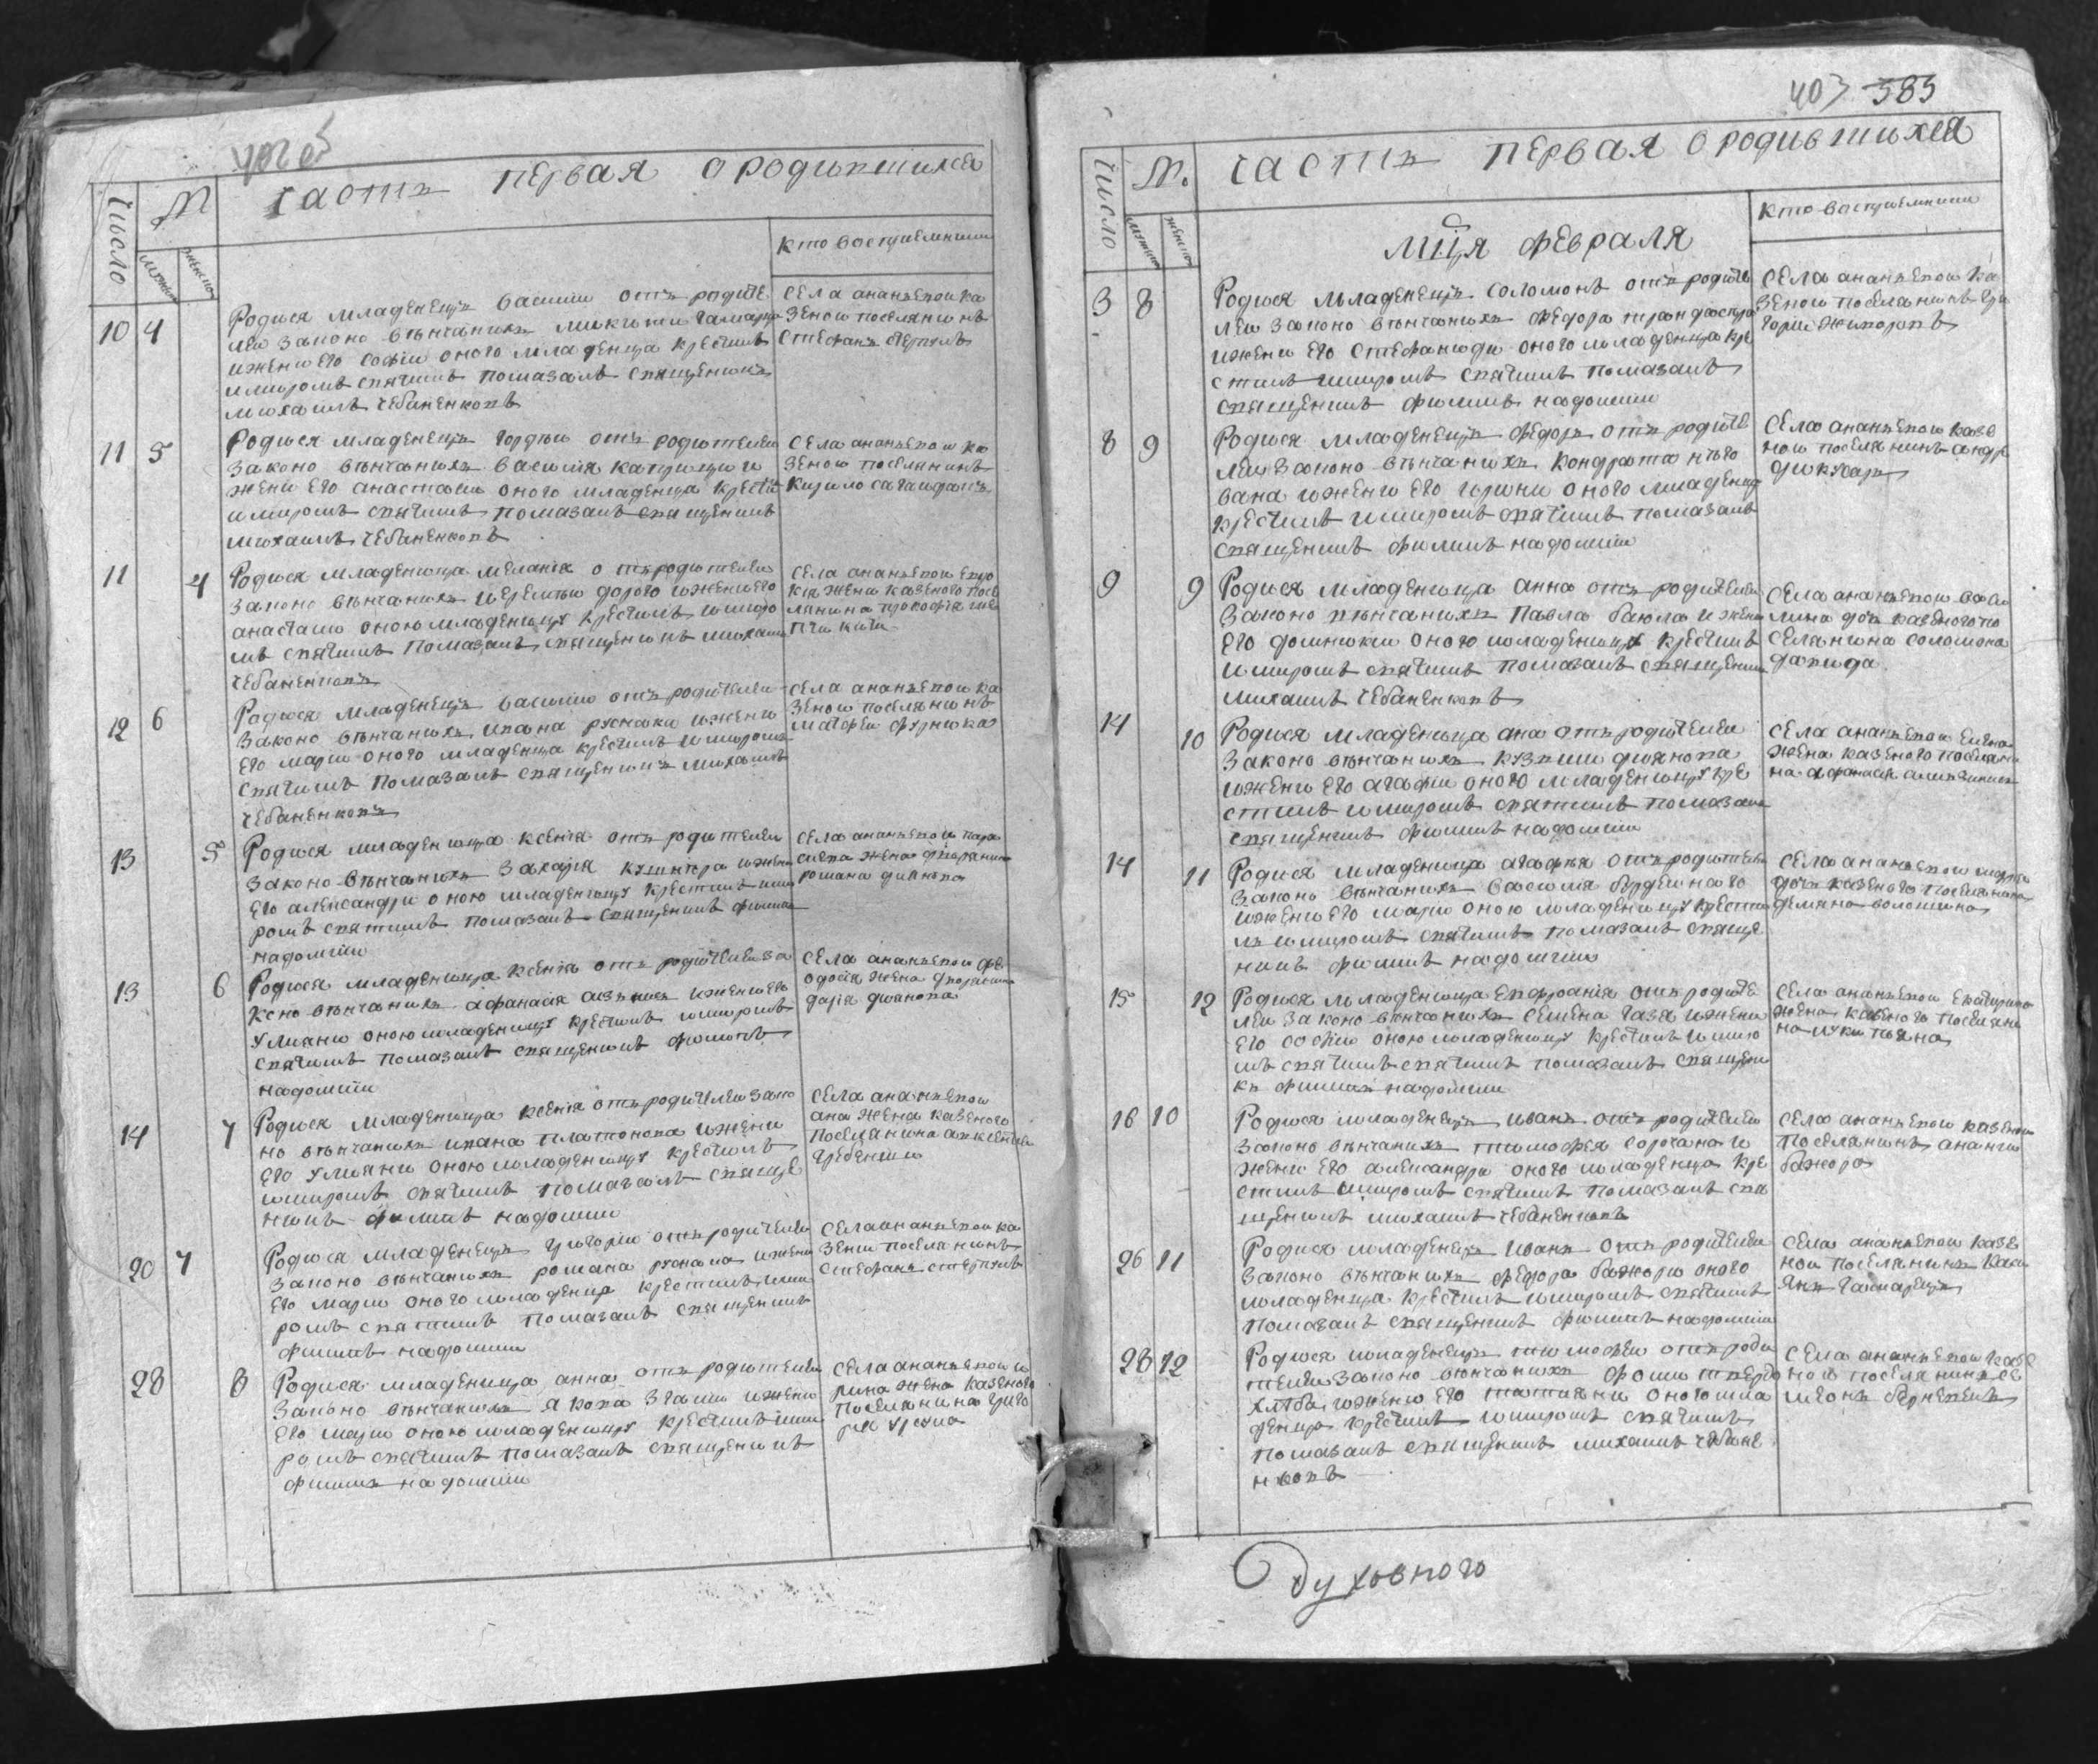 Часть первая о родившихся
число
М
мужеск
женск
кто восприемники
10 4
Родися младенецъ василии отъ родите
леи законо вѣнчаныхъ микиты гамарца
ижены его софіи оного младенца крестилъ
имиромъ святимъ помазалъ священикъ
михаилъ чебаненковъ
села ананьевои ка
зенои поселянинъ
стефанъ стерпулъ
11 5
Родися младенецъ гордѣи отъ родителеи
законо вѣнчаныхъ василия и
жены его анастасіи оного младенца крести
имиромъ святимъ помазалъ священикъ
михаилъ чебаненковъ
села ананьевои ка
зенои поселянинъ
кирило
11 4
Родися младеница меланія отъ родителеи
законо вѣнчаныхъ иеремѣи дорого ижены его
анастасіи оною младеницу крестилъ имиро
мъ святимъ помазалъ священикъ михаи
чебаненковъ
села ананьевои
жена казеного посе
лянина прокофія
12 6
Родися младенецъ василии отъ родителеи
законо вѣнчаныхъ ивана руснака ижены
его маріи оного младенца крестилъ имиромъ
святимъ помазалъ священикъ михаилъ
чебаненковъ
села ананьевои ка
зенои поселянинъ
матфеи фурника
13 5
Родися младеница ксенія отъ родителеи
законо вѣнчаныхъ захарія кушнера ижени
его александри оною младеницу крестилъ ими
ромъ святимъ помазалъ священикъ филип
надолніи
села ананьевои пара
скева жена дворянина
романа диянова
13 6
Родися младеница ксенія отъ родителеи за
коно вѣнчаныхъ афанасія ижены его
улияни оною младеницу крестилъ имиромъ
святимъ помазалъ священикъ филипъ
надолніи
села ананьевои фе
одосія жена дворянина
дарія диянова
14 7
Родися младеница ксенія отъ родителеи зако
но вѣнчаныхъ ивана платонова ижены
его улияни оною младеницу крестилъ
имиромъ святимъ помазалъ свяще
никъ филипъ надолніи
села ананьевои
ана жена казеного
поселянина авксентия
гребенши
20 7
Родися младенецъ григории отъ родителеи
законо вѣнчаныхъ романа руснака ижени
его маріи оного младенца крестилъ ими
ромъ святимъ помазалъ священикъ
филипъ надолніи
села ананьевои ка
зени поселянинъ
стефанъ стерпулъ
28 8
Родися младеница анна отъ родителеи
законо вѣнчаныхъ якова ижени
его маріи оною младеницу крестилъ ими
ромъ святимъ помазалъ священикъ
филипъ надолніи
села ананьевои и
рина жена казеного
поселянина григо
рія урсула
403 383
Часть первая о родившихся
число
М.
мужеск
женск
кто восприемники
мця февраля
3 8
Родися младенецъ соломонъ отъ родите
леи законо вѣнчаныхъ федора
ижены его стефаниди оного младенца кре
стилъ имиромъ святимъ помазалъ
священикъ филипъ надолніи
села ананьевои ка
зенои поселанинъ гри
гории
8 9
Родися младенецъ федоръ отъ родите
леи законо вѣнчаныхъ кондрата
ижены его ирини оного младенца
крестилъ имиромъ святимъ помазалъ
священикъ филипъ надолніи
села ананьевои казе
нои поселянинъ андре
9 9
Родися младеница анна отъ родителеи
законо вѣнчаныхъ павла баюла ижени
его домникии оною младеницу крестилъ
имиромъ святимъ помазалъ священик
михаилъ чебаненковъ
села ананьевои васи
лина доч казеного по
селянина соломона
давида
14 10
Родися младеница ана отъ родителеи
законо вѣнчаныхъ кузмы диянова
ижены его агафіи оною младеницу кре
стилъ имиромъ святимъ помазалъ
священикъ филипъ надолніи
села ананьевои елена
жена казеного поселяни
на афанасія
14 11
Родися младеница агафія отъ родителеи
законо вѣнчаныхъ василия
ижены его маріи оною младеницу крести
лъ имиромъ святимъ помазалъ свяще
никъ филипъ надолніи
села ананьевои марія
доч казеного поселянина
демяна волошина
15 12
Родися младеница евфросинія отъ родите
леи законо вѣнчаныхъ семена газа ижены
его софіи оною младеницу крестилъ имиро
мъ святимъ святимъ помазалъ священи
къ филипъ надолніи
села ананьевои екатирина
жена казеного поселяни
на луки пояна
16 10
Родися младенецъ иванъ отъ родителеи
законо вѣнчаныхъ тимофея сорочана и
жены его александри оного младенца кре
стилъ имиромъ святимъ помазалъ свя
щеникъ михаилъ чебаненковъ
села ананьевои казенои
поселянинъ ананіи
бажора
26 11
Родися младенецъ иванъ отъ родителеи
законо вѣнчаныхъ федора бажоры оного
младенца крестилъ имиромъ святимъ
помазалъ священикъ филипъ надолніи
села ананьевои казе
нои поселянинъ каси
янъ гамарецъ
28 12
Родися младенецъ тимофеи отъ роди
телеи законо вѣнчаныхъ фомы твердо
хлѣба ижены его татияни оного мла
денца крестилъ имиромъ святимъ
помазалъ священикъ михаилъ чебане
нковъ
села ананьевои казе
нои поселянинъ се
меонъ
Духовного